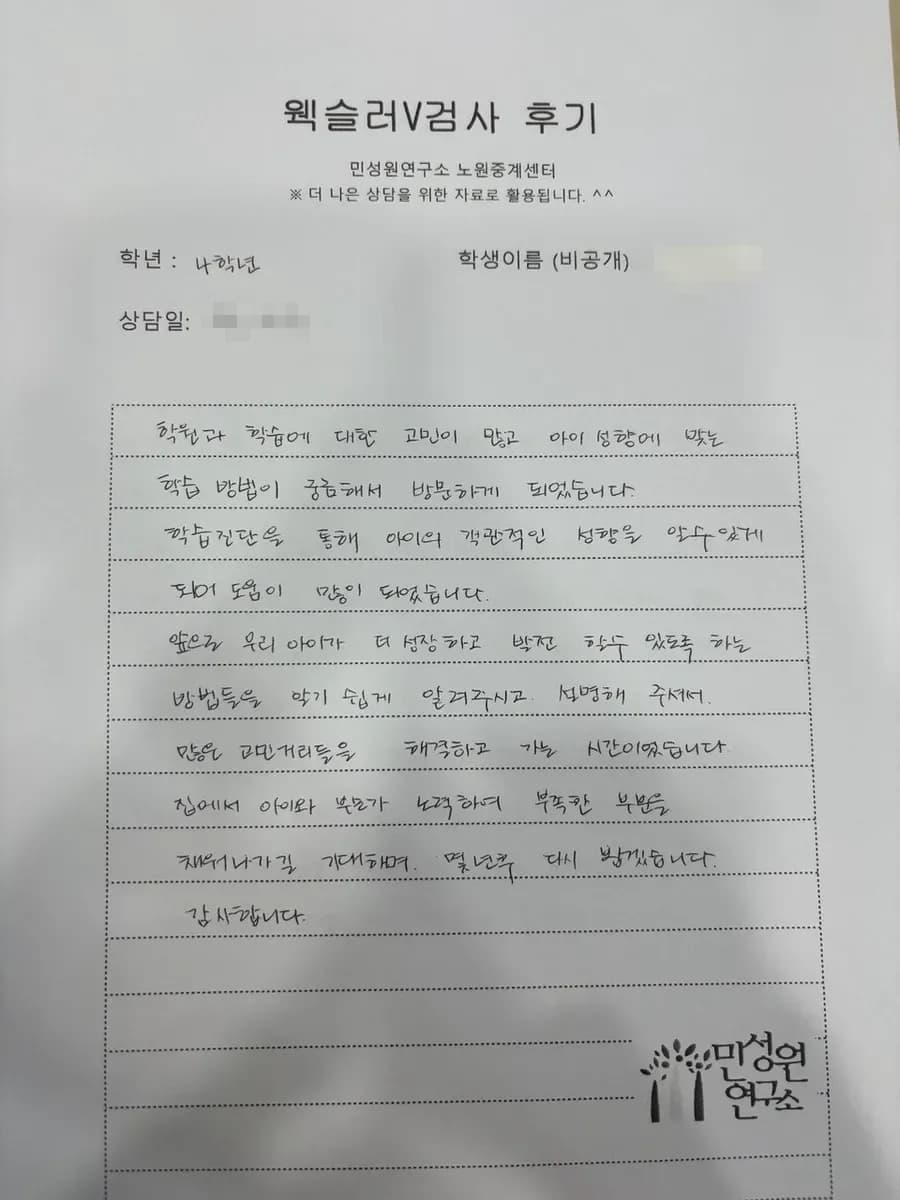 웩슬러V검사 후기
민성원연구소 노원중계센터
※ 더 나은 상담을 위한 자료로 활용됩니다. ^^
학년 : 4학년 학생이름 (비공개)
상담일:
학원과 학습에 대한 고민이 많고 아이 성향에 맞는
학습 방법이 궁금해서 방문하게 되었습니다.
학습진단을 통해 아이의 객관적인 성향을 알수있게
되어 도움이 많이 되었습니다.
앞으로 우리 아이가 더 성장하고 발전 할수 있도록 하는
방법들을 알기 쉽게 알려주시고. 설명해 주셔서.
많은 고민거리들을 해결하고 가는 시간이였습니다.
집에서 아이와 부모가 노력하며 부족한 부분을
채워나가길 기대하며. 몇년후 다시 뵙겠습니다.
감사합니다.
민성원
연구소